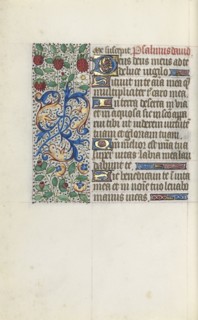 me suscepit. Psalmus david
Deus deus meus ad te
de luce vigilo
Sitivit in te aia mea q
multipliciter t caro mea
In terra deserta in via
et in aquosa sic in sco app
rui tibi ut viderem virtute
tuam et gloriam tuam
Qm melior est mia tua
super vitas labia mea lau
dabunt te
Sic benedicam te i vita
mea et in noie tuo levabo
manus meas